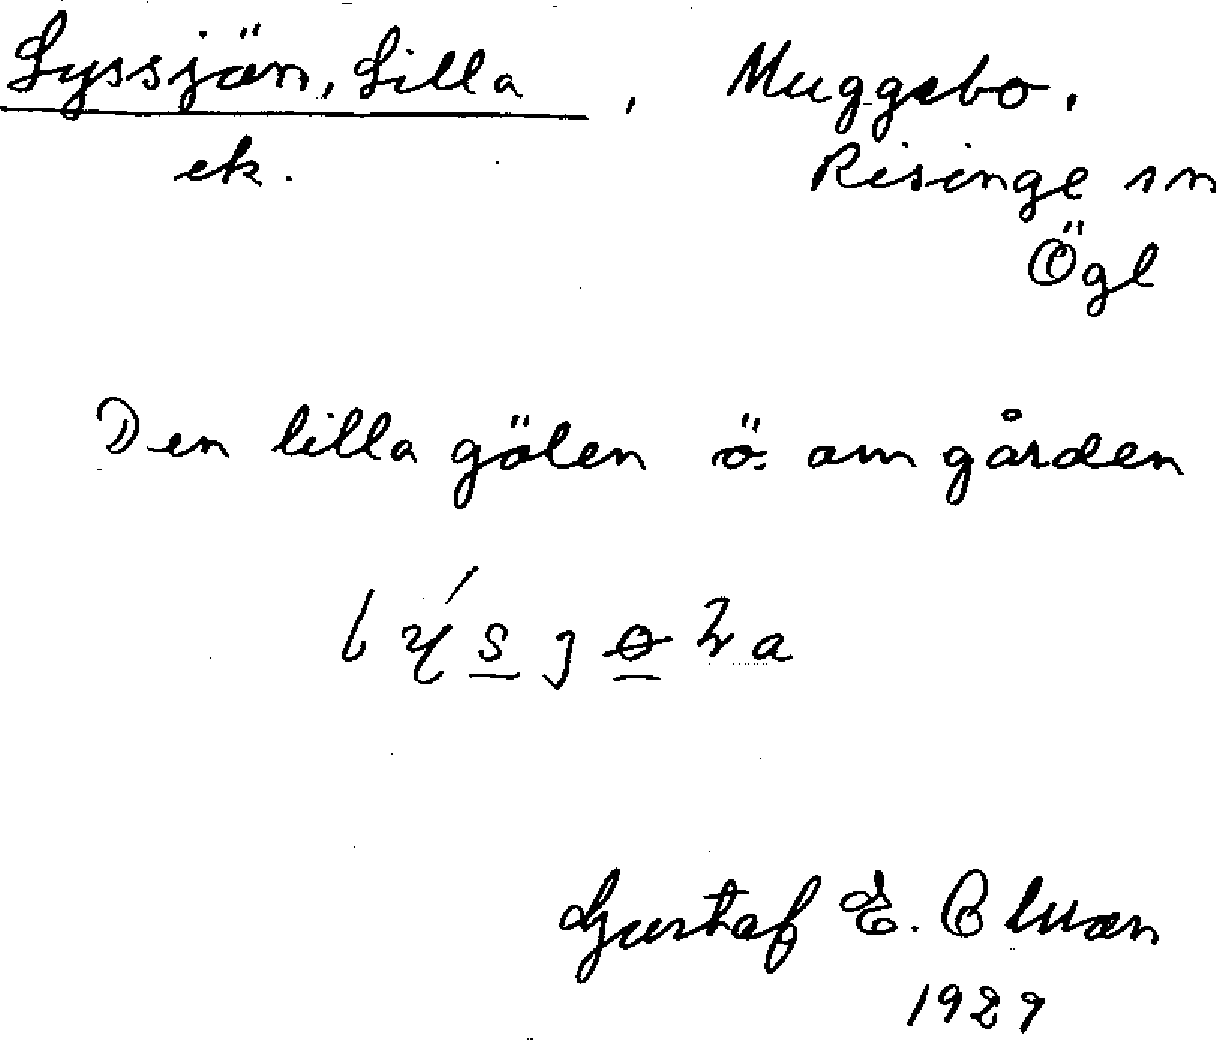 Lyssjön, Lilla, Muggebo.
ek.
Risinge sn
Ögl
Den lilla gölen ö. om gården
Gustaf E.
1929